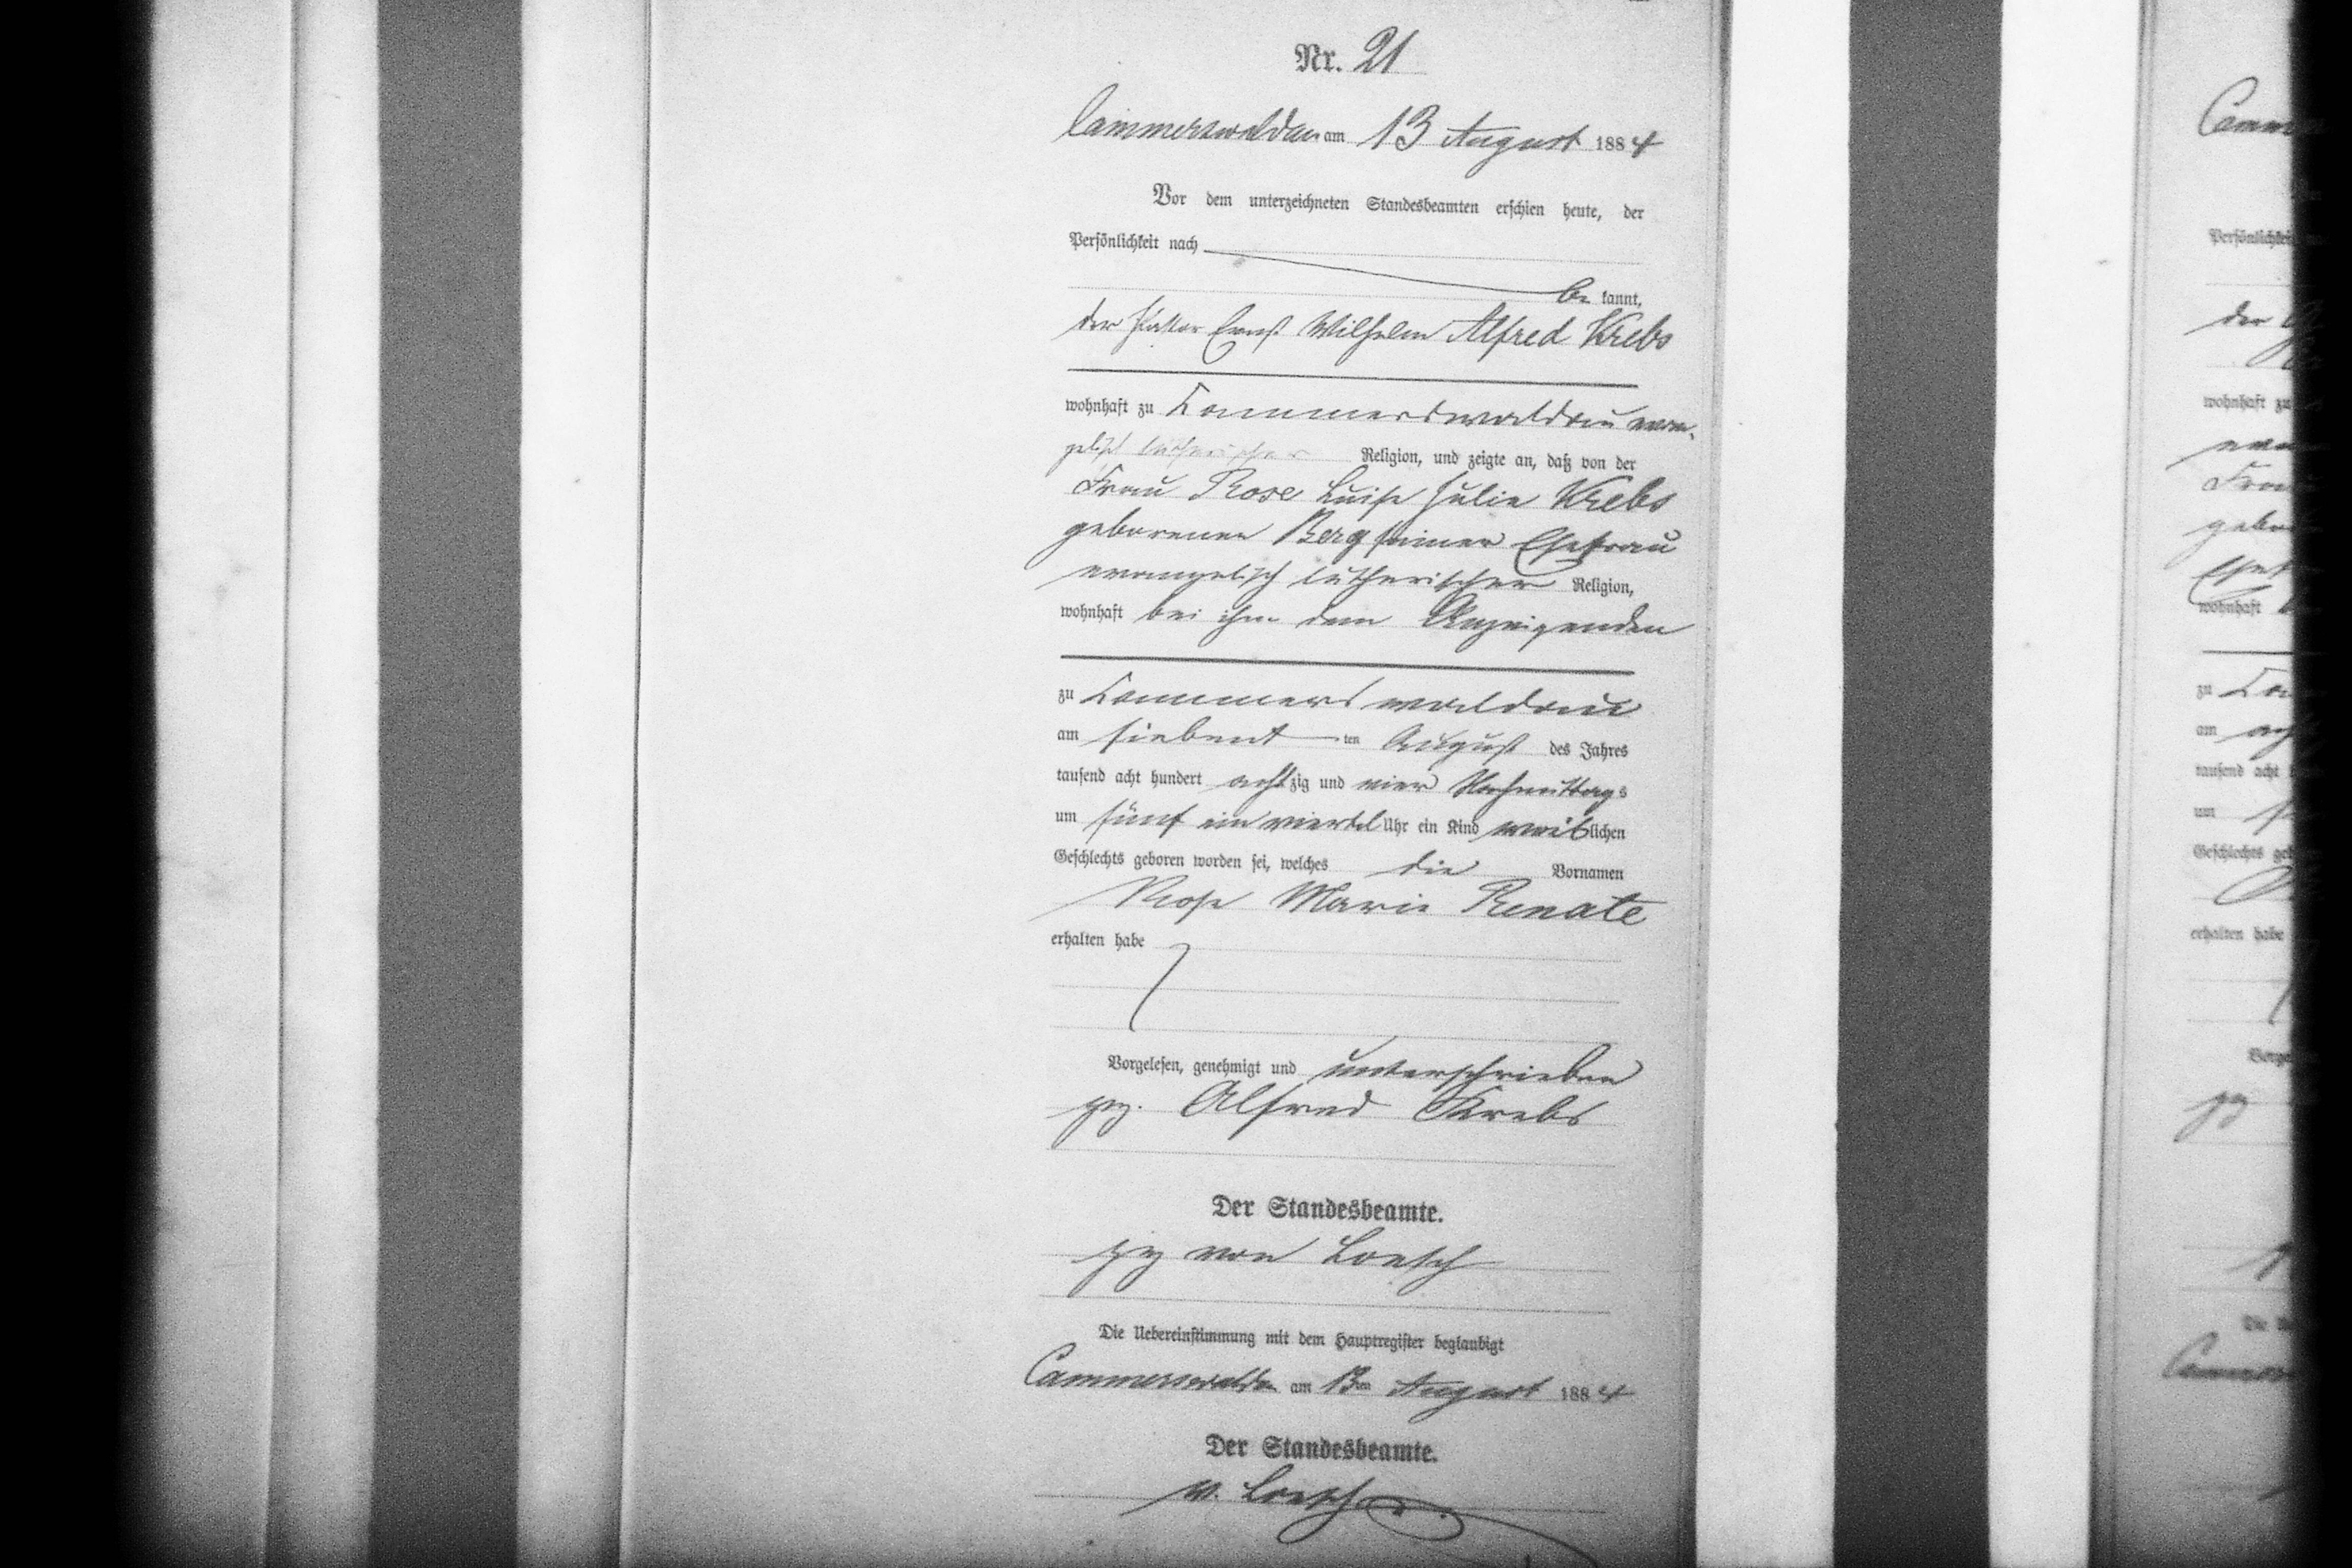 Nr. 21
Cammerswaldau am 13 August 1884
Vor dem unterzeichneten Standesbeamten erschien heute, der
Persönlichkeit nach
be kannt,
der Pastor Ernst Wilhelm Alfred Krebs
wohnhaft zu Cammerswaldau evan-
gelisch lutherischer Religion, und zeigte an, daß von der
Frau Rose Luise Julie Krebs
geborenen Berg seiner Ehefrau
evangelisch lutherischer Religion,
wohnhaft bei ihm dem Anzeigenden
zu Cammerswaldau
am siebent ten August des Jahres
tausend acht hundert achtzig und vier Nachmittags
um fünf ein viertel Uhr ein Kind weiblichen
Geschlechts geboren worden sei, welches die Vornamen
Rose Marie Renate
erhalten habe
Vorgelesen, genehmigt und unterschrieben
gez. Alfred Krebs
Der Standesbeamte.
gez von Loesch
Die Uebereinstimmung mit dem Hauptregister beglaubigt
Cammerswaldau am 13ten August 1884
Der Standesbeamte.
v. Loesch
Camm
Persönlichkei
der
wohnhaft zu
evan
Frau
gebor
Ehef
wohnhaft
zu Ca
am
tausend acht
um
Geschlechts geb
erhalten habe
Vorge
gez
Die
Cammers